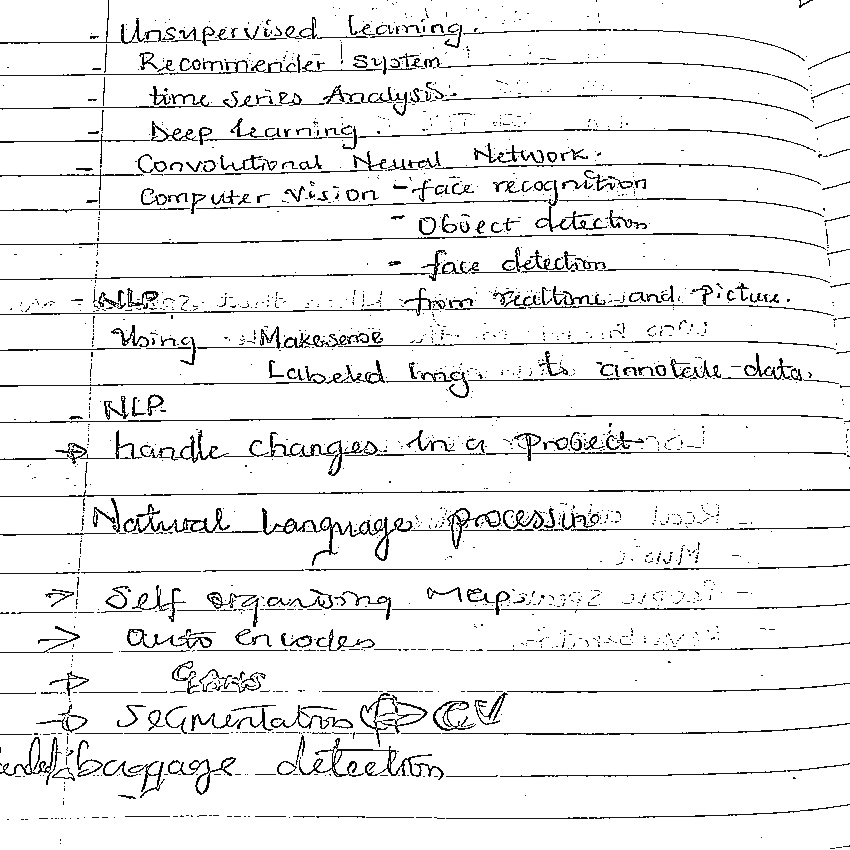 - Unsupervised learning.
- Recommender System
- time series Analysis.
- Deep learning.
- Convolutional Neural Network.
- Computer Vision - face recognition
- Object detection
- face detection
- NLP from realtime and Picture.
Using Makesense
Labeled Img to annotate data.
- NLP
→ handle changes in a project
Natural Language processing
→ Self organising Maps
→ auto encodes
→ GANS
→ SEGMentation CV
baggage detection